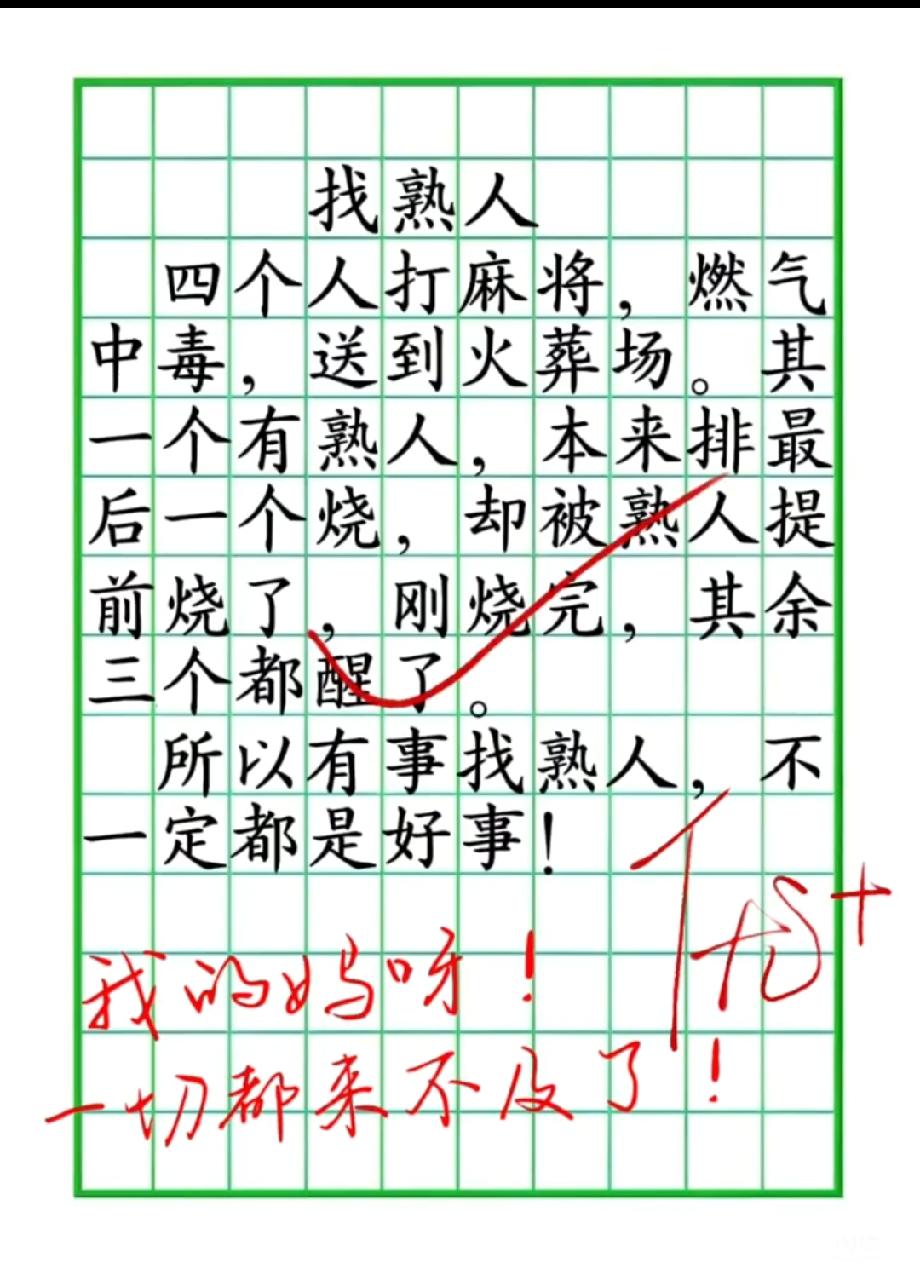 找熟人
四个人打麻将，燃气
中毒，送到火葬场。其
一个有熟人，本来排最
后一个烧，却被熟人提
前烧了，刚烧完，其余
三个都醒了。
所以有事找熟人，不
一定都是好事！
我的妈呀！
一切都来不及了！